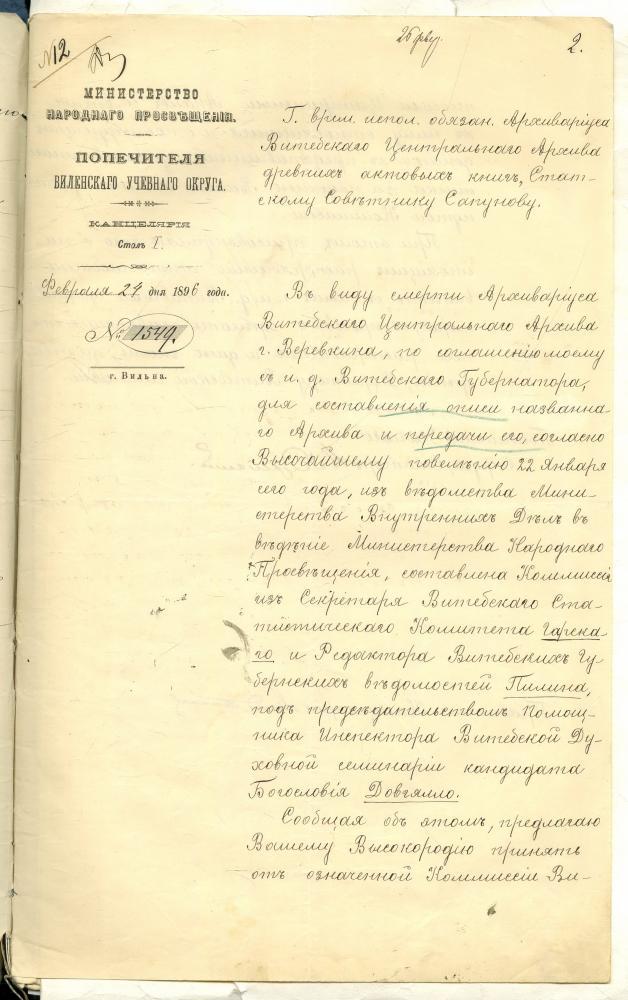 №12
26 февр.
2.
МИНИСТЕРСТВО
НАРОДНАГО ПРОСВѢЩЕНІЯ.
ПОПЕЧИТЕЛЯ
ВИЛЕНСКАГО УЧЕБНАГО ОКРУГА.
КАНЦЕЛЯРІЯ
Столъ I.
Февраля 24 дня 1896 года.
№ 1549.
г. Вильна.
Г. врем. испол. обязан. Архиваріуса
Витебскаго Центральнаго Архива
древнихъ актовыхъ книгъ, Стат-
скому Совѣтнику Сапунову.
Въ виду смерти Архиваріуса
Витебскаго Центральнаго Архива
г. Веревкина, по соглашенію моему
съ и. д. Витебскаго Губернатора,
для составленія описи названна-
го Архива и передачи его, согласно
Высочайшему повелѣнію 22 Января
сего года, изъ вѣдомства Мини-
стерства Внутреннихъ Дѣлъ въ
вѣдѣніе Министерства Народнаго
Просвѣщенія, составлена Коммиссія
изъ Секретаря Витебскаго Ста-
тистическаго Комитета Гарска-
го и Редактора Витебскихъ Гу-
бернскихъ вѣдомостей Пилина,
подъ предсѣдательствомъ Помощ-
ника Инспектора Витебской Ду-
ховной семинаріи кандидата
Богословія Довгялло.
Сообщая объ этомъ, предлагаю
Вашему Высокородію принять
отъ означенной Коммиссіи Ви-